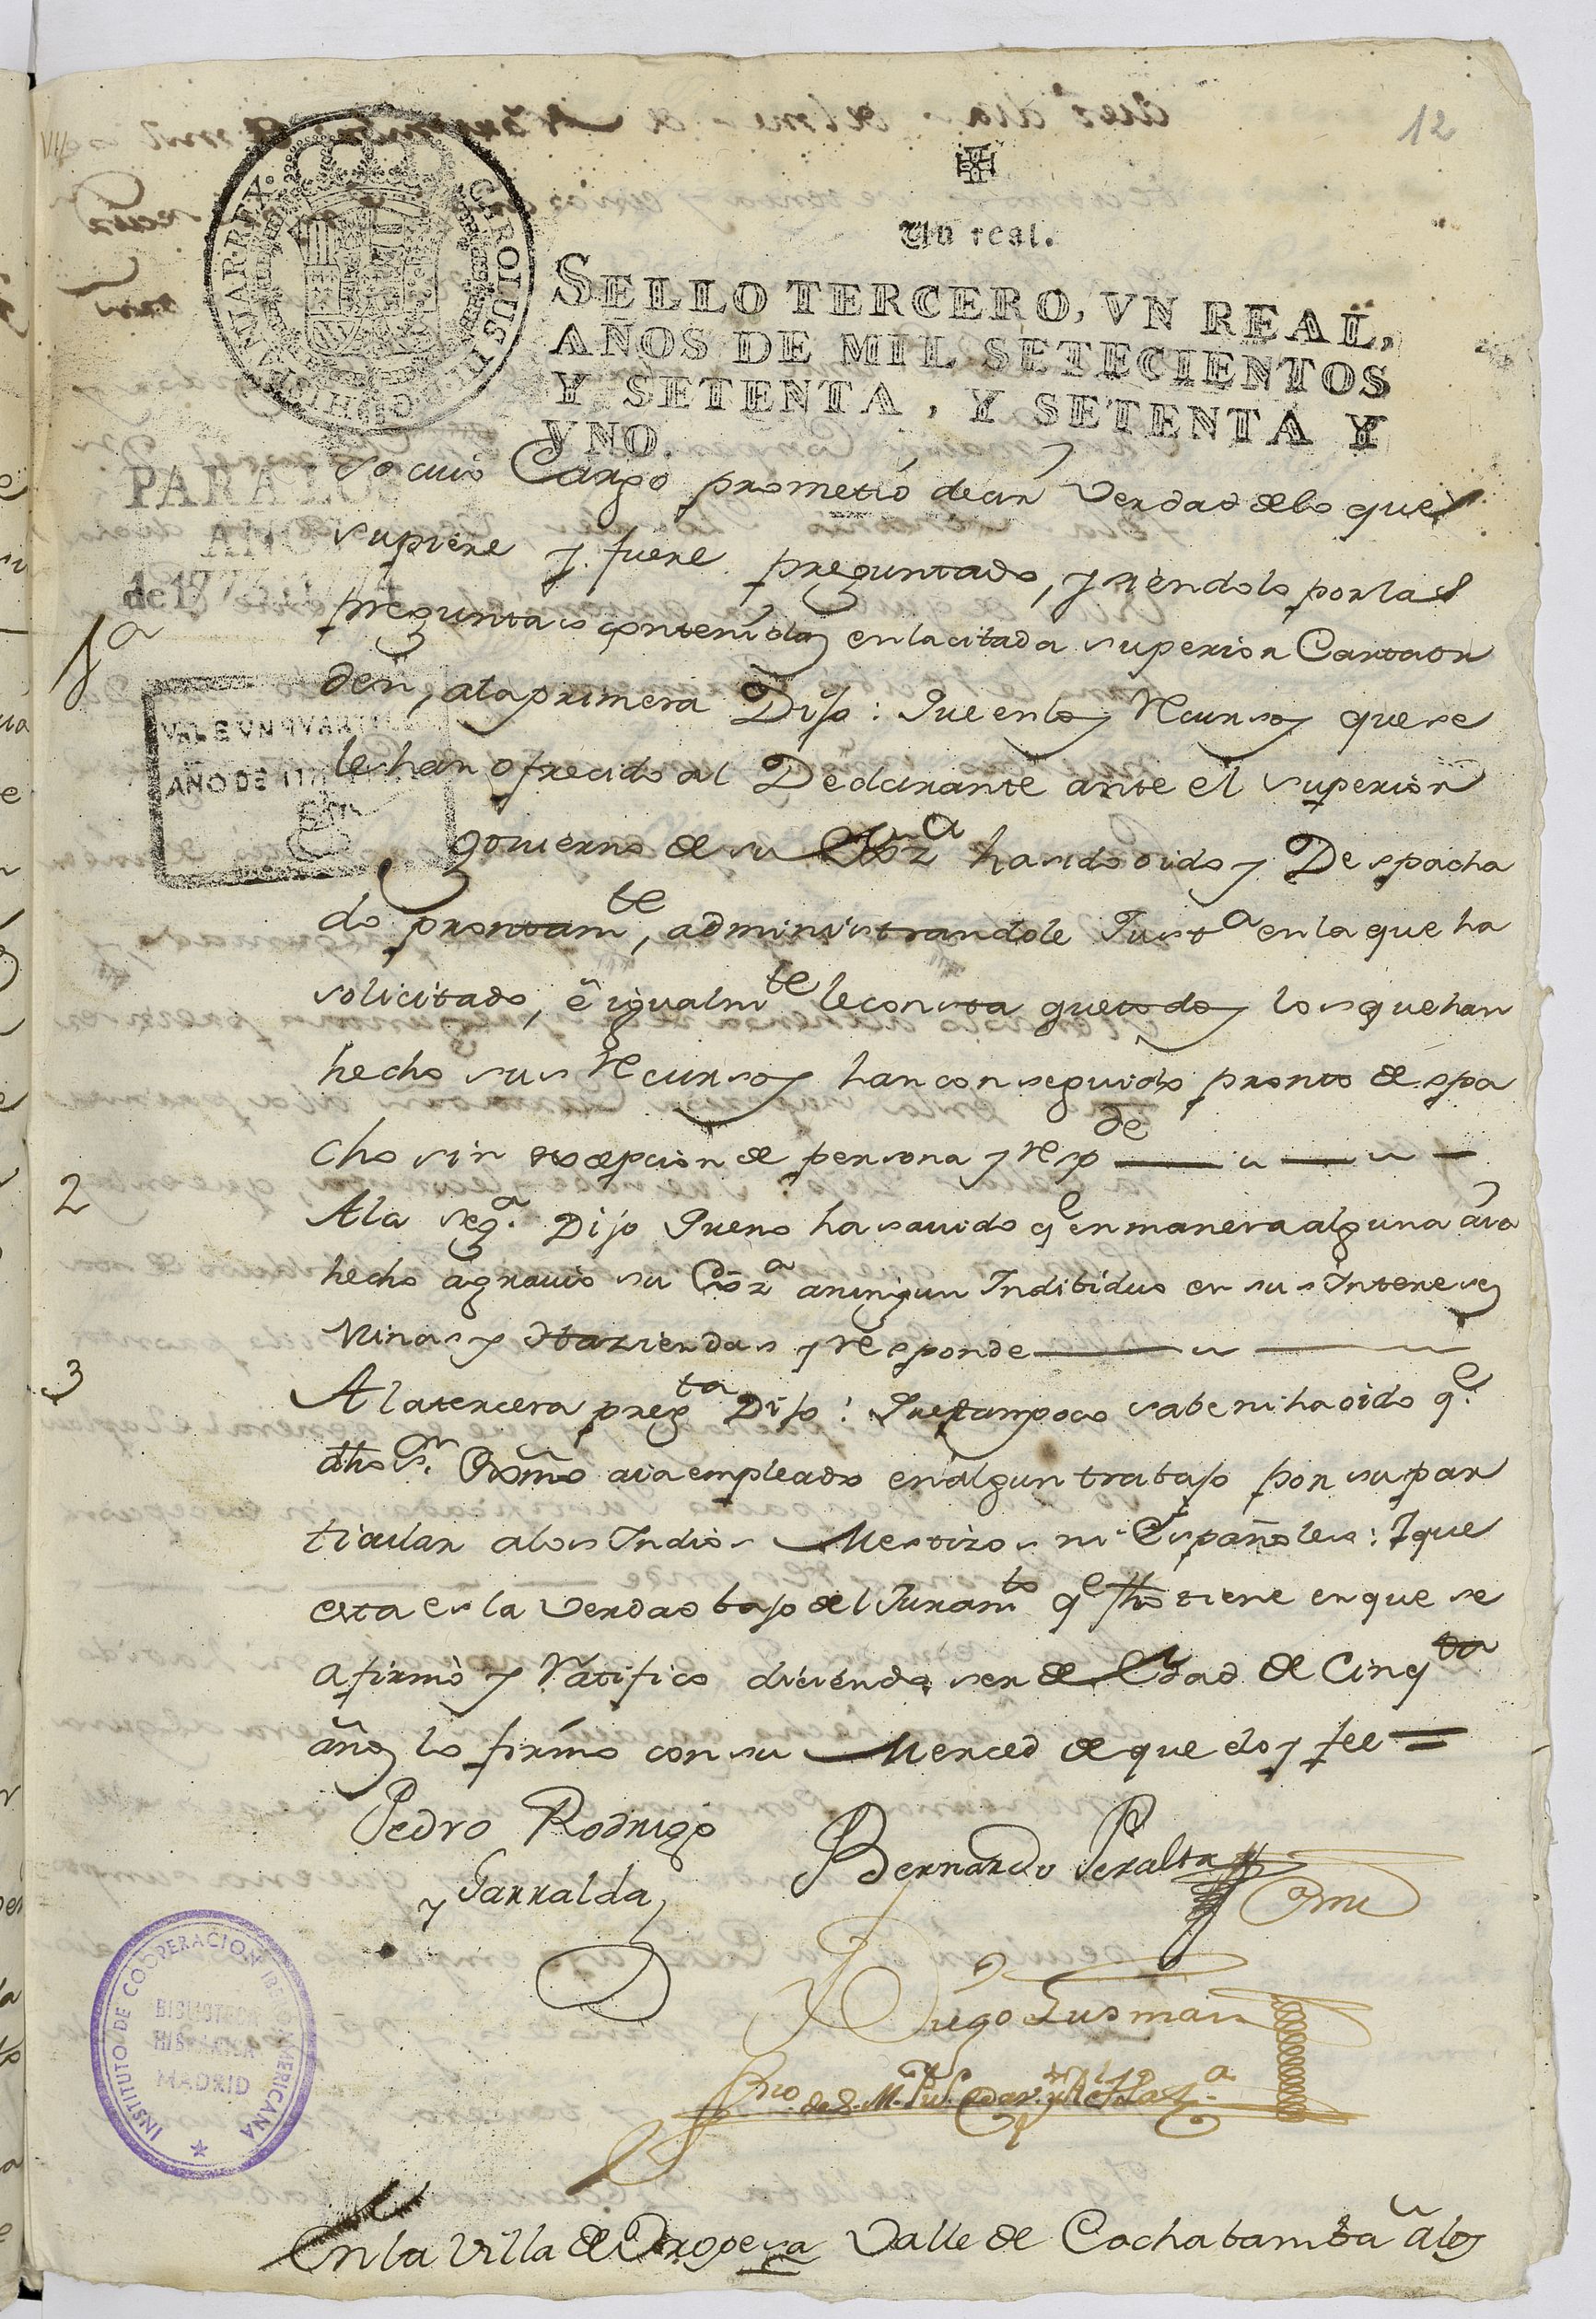 12
Un real.
SELLO TERCERO, VN REAL,
AÑOS DE MIL SETECIENTOS
Y SETENTA, Y SETENTA Y
VNO.
CAROLUS III D G HISPANIAR REX
PARA LOS
AÑOS
de 1773
VALE UN QVARTILLO
AÑO DE 177
so cuio Cargo prometió decir Verdad de lo que
supiere y fuere preguntado, y siendolo por las
1a
preguntas contenidas en la citada superior Carta or
den, a la primera Dijo: Que en los Recursos que se
le han ofrecido al Declarante ante el superior
govierno de su Exa ha sido oido y Despacha
do prontamte, administrandole Justa en la que ha
solicitado, é igualmte le consta que todos los que han
hecho sus Recursos han conseguido pronto despa
cho sin excepcion de persona y respde
2
A la sega. Dijo Que no ha savido qe en manera alguna áia
hecho ágravio su Exa a ningun Indibiduo en sus Intereses
Minas y Haziendas y responde
3
A la tercera pregta Dijo: Que tampoco sabe ni ha oido qe.
dho Sr. Exmo aia empleado en algun trabajo por su par
ticular a los Indios Mestizos ni Españoles: Y que
esta es la Verdad bajo del Juramto qe fho tiene en que se
afirmó y Ratificó diciendo ser de Edad de Cinqta
años lo firmó con su Merced de que doy fee =
Pedro Rodrigo
y Garralda
Bernardo Peralta
Diego Gusman
Sno. de S. M. Pu.
INSTITUTO DE COOPERACION IBEROAMERICANA
BIBLIOTECA
HISPANICA
MADRID
En la Villa de Oropesa Valle de Cochabamba á los